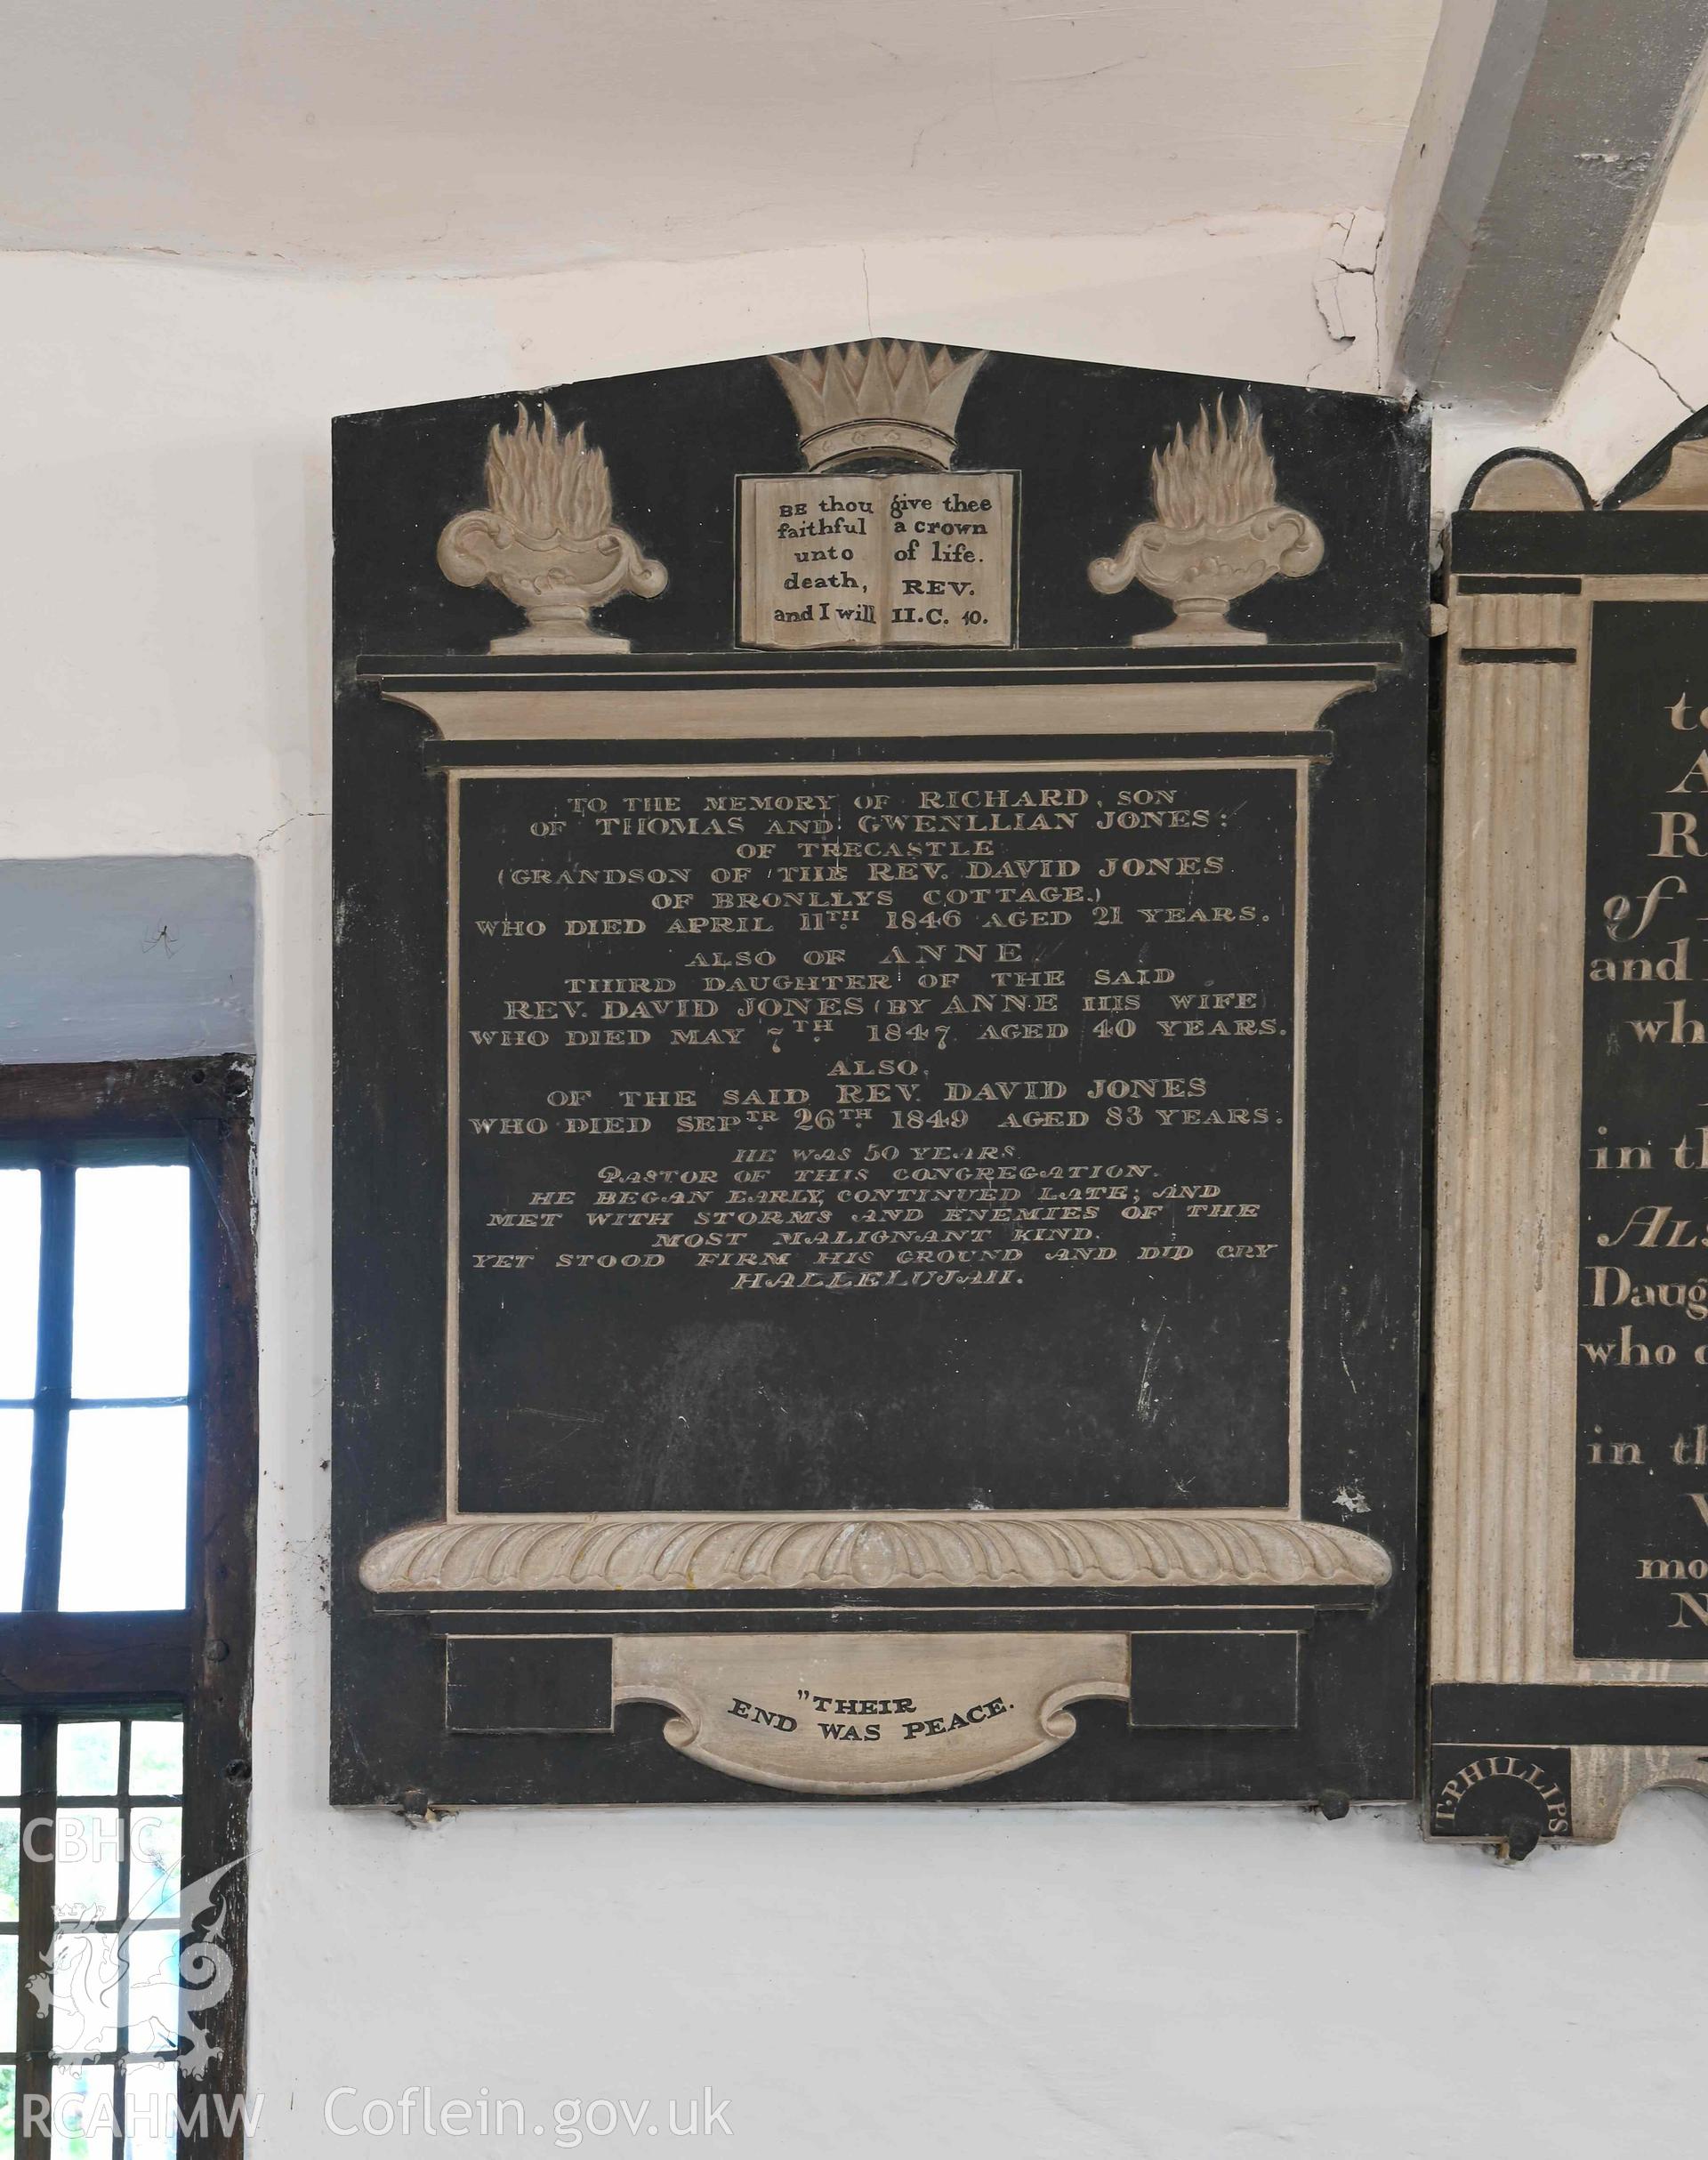 BE thou
faithful
unto
death,
and I will
give thee
a crown
of life.
REV.
II.C. 10.
TO THE MEMORY OF RICHARD, SON
OF THOMAS AND GWENLLIAN JONES:
OF TRECASTLE
(GRANDSON OF THE REV. DAVID JONES
OF BRONLLYS COTTAGE.)
WHO DIED APRIL 11TH 1846 AGED 21 YEARS.
ALSO OF ANNE
THIRD DAUGHTER OF THE SAID
REV. DAVID JONES (BY ANNE HIS WIFE)
WHO DIED MAY 7TH 1847 AGED 40 YEARS.
ALSO,
OF THE SAID REV. DAVID JONES
WHO DIED SEPTR 26TH 1849 AGED 83 YEARS:
HE WAS 50 YEARS
PASTOR OF THIS CONGREGATION.
HE BEGAN EARLY, CONTINUED LATE; AND
MET WITH STORMS AND ENEMIES OF THE
MOST MALIGNANT KIND.
YET STOOD FIRM HIS GROUND AND DID CRY
HALLELUJAH.
"THEIR
END WAS PEACE.
of
and
in
Daug
who
in
T. PHILLIPS
CBHC
RCAHMW
Coflein.gov.uk